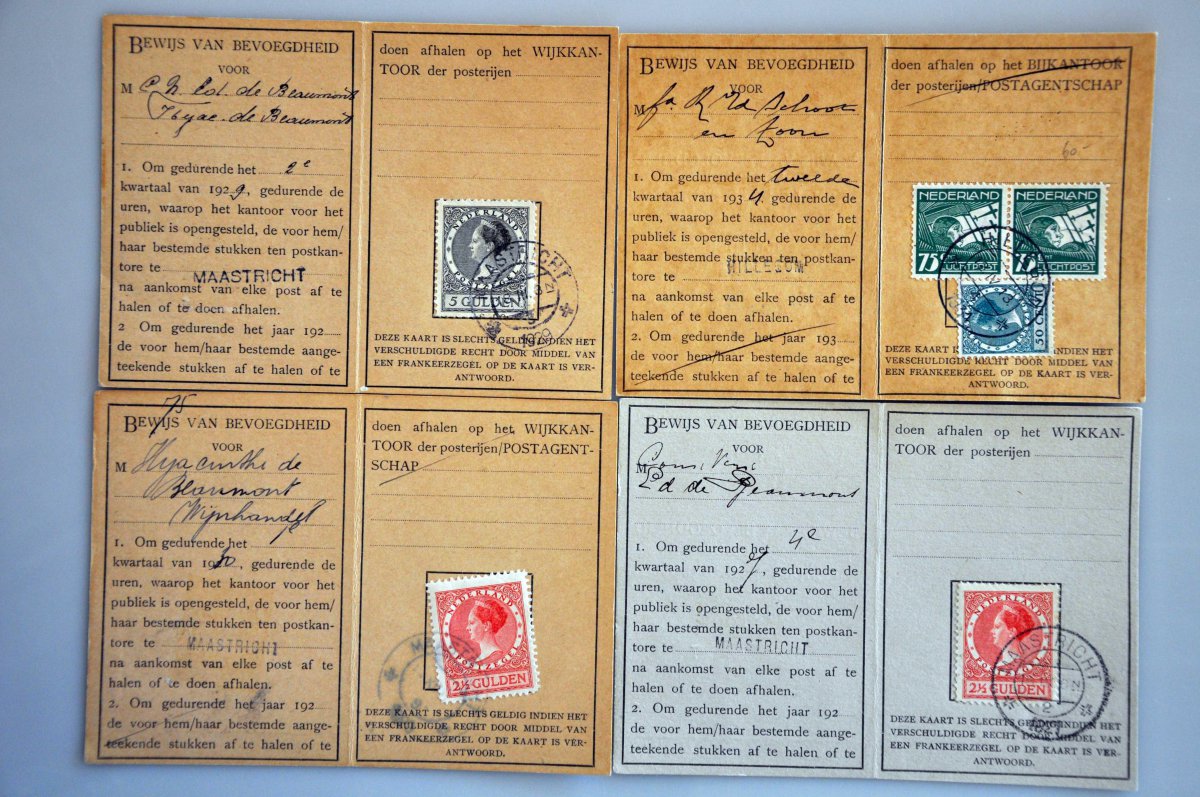 BEWIJS VAN BEVOEGDHEID
VOOR
M C. N. Ed. de Beaumont
Hyac. de Beaumont
1. Om gedurende het 2e
kwartaal van 1929, gedurende de
uren, waarop het kantoor voor het
publiek is opengesteld, de voor hem/
haar bestemde stukken ten postkan-
tore te MAASTRICHT
na aankomst van elke post af te
halen of te doen afhalen.
2 Om gedurende het jaar 192
de voor hem/haar bestemde aange-
teekende stukken af te halen of te
doen afhalen op het WIJKKAN-
TOOR der posterijen
NEDERLAND
POSTZEGEL
5 GULDEN
MAASTRICHT
1929
DEZE KAART IS SLECHTS GELDIG INDIEN HET
VERSCHULDIGDE RECHT DOOR MIDDEL VAN
EEN FRANKEERZEGEL OP DE KAART IS VER-
ANTWOORD.
BEWIJS VAN BEVOEGDHEID
VOOR
M fa R. v/d Schoot
en Zoon
1. Om gedurende het tweede
kwartaal van 1934, gedurende de
uren, waarop het kantoor voor het
publiek is opengesteld, de voor hem/
haar bestemde stukken ten postkan-
tore te HILLEGOM
na aankomst van elke post af te
halen of te doen afhalen.
2. Om gedurende het jaar 193
de voor hem/haar bestemde aange-
teekende stukken af te halen of te
doen afhalen op het BIJKANTOOR
der posterijen/POSTAGENTSCHAP
60-
NEDERLAND
75
LUCHTPOST
NEDERLAND
75
LUCHTPOST
50 CENT
DEZE KAART IS SLECHTS GELDIG INDIEN HET
VERSCHULDIGDE RECHT DOOR MIDDEL VAN
EEN FRANKEERZEGEL OP DE KAART IS VER-
ANTWOORD.
75
BEWIJS VAN BEVOEGDHEID
VOOR
M Hyacinthe de
Beaumont
Wijnhandel
1. Om gedurende het
kwartaal van 19, gedurende de
uren, waarop het kantoor voor het
publiek is opengesteld, de voor hem/
haar bestemde stukken ten postkan-
tore te MAASTRICHT
na aankomst van elke post af te
halen of te doen afhalen.
2. Om gedurende het jaar 192
de voor hem/haar bestemde aange-
teekende stukken af te halen of te
doen afhalen op het WIJKKAN-
TOOR der posterijen/POSTAGENT-
SCHAP
NEDERLAND
POSTZEGEL
2½ GULDEN
DEZE KAART IS SLECHTS GELDIG INDIEN HET
VERSCHULDIGDE RECHT DOOR MIDDEL VAN
EEN FRANKEERZEGEL OP DE KAART IS VER-
ANTWOORD.
BEWIJS VAN BEVOEGDHEID
VOOR
M
Ed de Beaumont
1. Om gedurende het 4e
kwartaal van 1927, gedurende de
uren, waarop het kantoor voor het
publiek is opengesteld, de voor hem/
haar bestemde stukken ten postkan-
tore te MAASTRICHT
na aankomst van elke post af te
halen of te doen afhalen.
2. Om gedurende het jaar 192
de voor hem/haar bestemde aange-
teekende stukken af te halen of te
doen afhalen op het WIJKKAN-
TOOR der posterijen
NEDERLAND
POSTZEGEL
2½ GULDEN
MAASTRICHT
DEZE KAART IS SLECHTS GELDIG INDIEN HET
VERSCHULDIGDE RECHT DOOR MIDDEL VAN
EEN FRANKEERZEGEL OP DE KAART IS VER-
ANTWOORD.